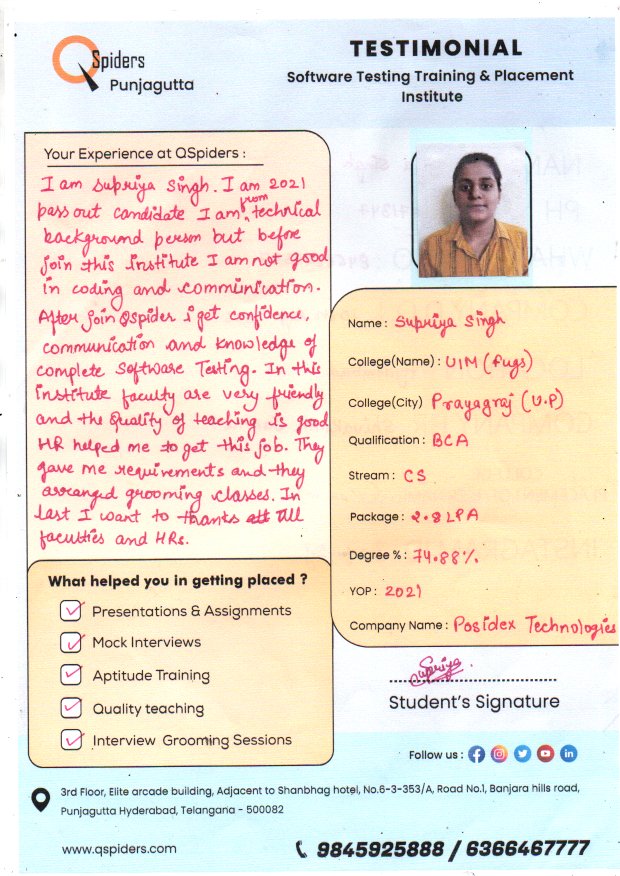 QSpiders
Punjagutta
TESTIMONIAL
Software Testing Training & Placement
Institute
Your Experience at QSpiders :
I am Supriya Singh. I am 2021
pass out candidate I am from technical
background person but before
join this institute I am not good
in coding and communication.
After join Qspider i get confidence,
communication and knowledge of
complete Software Testing. In this
institute faculty are very friendly
and the Quality of teaching is good
HR helped me to get this job. They
gave me requirements and they
arranged grooming classes. In
last I want to thanks all
faculties and HRs.
Name : Supriya Singh
College(Name) : UIM (Pugs)
College(City) Prayagraj (U.P)
Qualification : BCA
Stream : CS
Package : 2.8 LPA
Degree % : 74.88%
YOP : 2021
Company Name : Posidex Technologies
What helped you in getting placed ?
Presentations & Assignments
Mock Interviews
Aptitude Training
Quality teaching
Interview Grooming Sessions
Supriya
Student's Signature
Follow us :
3rd Floor, Elite arcade building, Adjacent to Shanbhag hotel, No.6-3-353/A, Road No.1, Banjara hills road,
Punjagutta Hyderabad, Telangana - 500082
www.qspiders.com
9845925888 / 6366467777